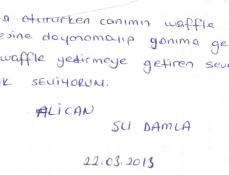 otururken canımın waffle
dayanamayıp yanıma ge
waffle yedirmeye getiren sev
SEVİYORUM.
ALİCAN
SU DAMLA
22.03.2013